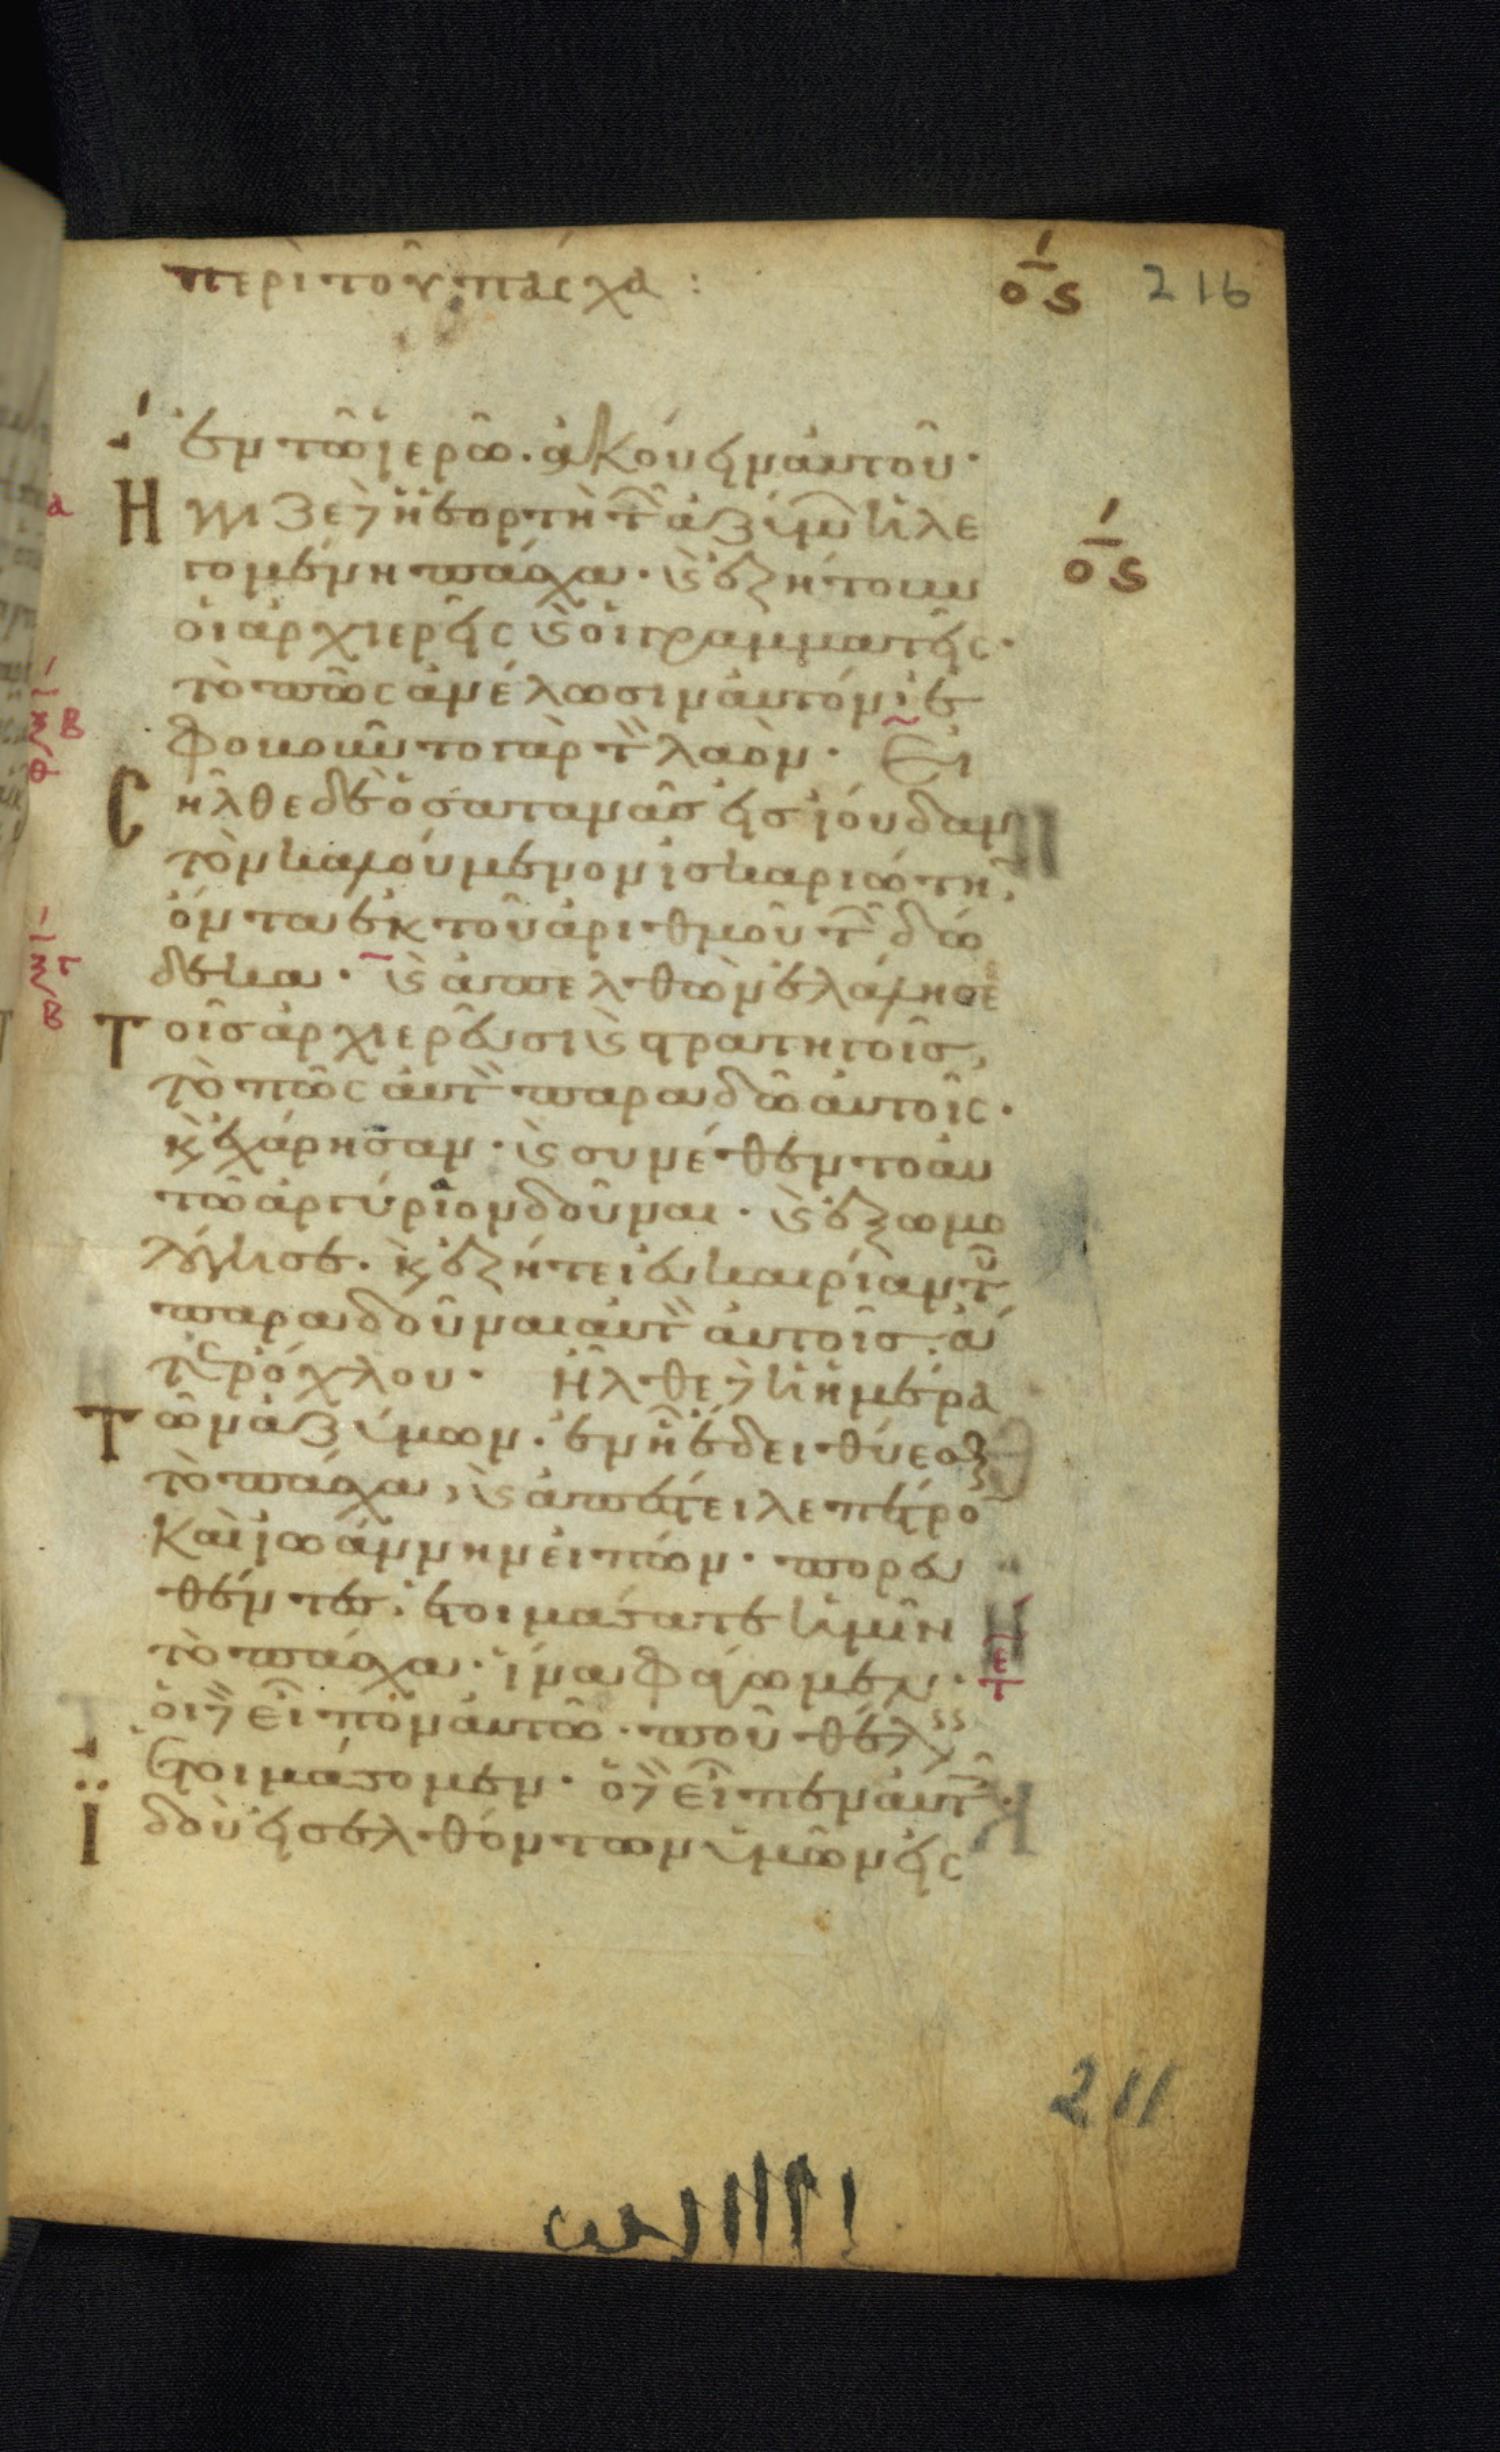 περὶ τοῦ πάσχα :
οϛ 216
ἐν τῶ ἱερῶ. ἀκούειν αὐτοῦ·
Ηγγιζε δὲ ἡ ἑορτὴ τῶν ἀζύμων ἡ λε
γομένη πάσχα· καὶ ἐζήτουν
οἱ ἀρχιερεῖς καὶ οἱ γραμματεῖς·
τὸ πῶς ἀνέλωσιν αὐτόν· ἐ
φοβοῦντο γὰρ τὸν λαὸν· Εἰ
Σῆλθε δὲ ὁ σατανᾶς εἰς ἰούδαν
τὸν καλούμενον ἰσκαριώτην,
ὄντα ἐκ τοῦ ἀριθμοῦ τῶν δώ
δεκα· καὶ ἀπελθὼν ἐλάλησε
Τοῖς ἀρχιερεῦσι καὶ στρατηγοῖς,
τὸ πῶς αὐτὸν παραδῶ αὐτοῖς·
κ ἐχάρησαν· καὶ συνέθεντο αὐ
τῶ ἀργύριον δοῦναι· καὶ ἐξωμο
λόγησε. κ ἐζήτει εὐκαιρίαν τοῦ
παραδοῦναι αὐτὸν αὐτοῖς ἄ
τερ ὄχλου· Ηλθε δὲ ἡ ἡμέρα
Τῶν ἀζύμων· ἐν ἧ ἔδει θύεσθαι
τὸ πάσχα, καὶ ἀπέστειλε πέτρον
Καὶ ἰωάννην εἰπών· πορευ
θέντες· ἑτοιμάσατε ἡμῖν
τὸ πάσχα· ἵνα φάγωμεν·
οἱ δὲ εἶπον αὐτῶ· ποῦ θέλεις
ἑτοιμάσομεν· ὁ δὲ εἶπεν αὐτοῖς·
Ἰδοὺ εἰσελθόντων ὑμῶν εἰς
οϛ
211